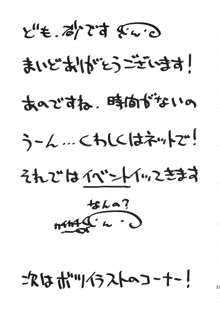 ども.砂です
まいどありがとうございます!
あのですね.時間がないの
うーん…くわしくはネットで!
それではイベントイッてきます
なんの?
次はボツイラストのコーナー!